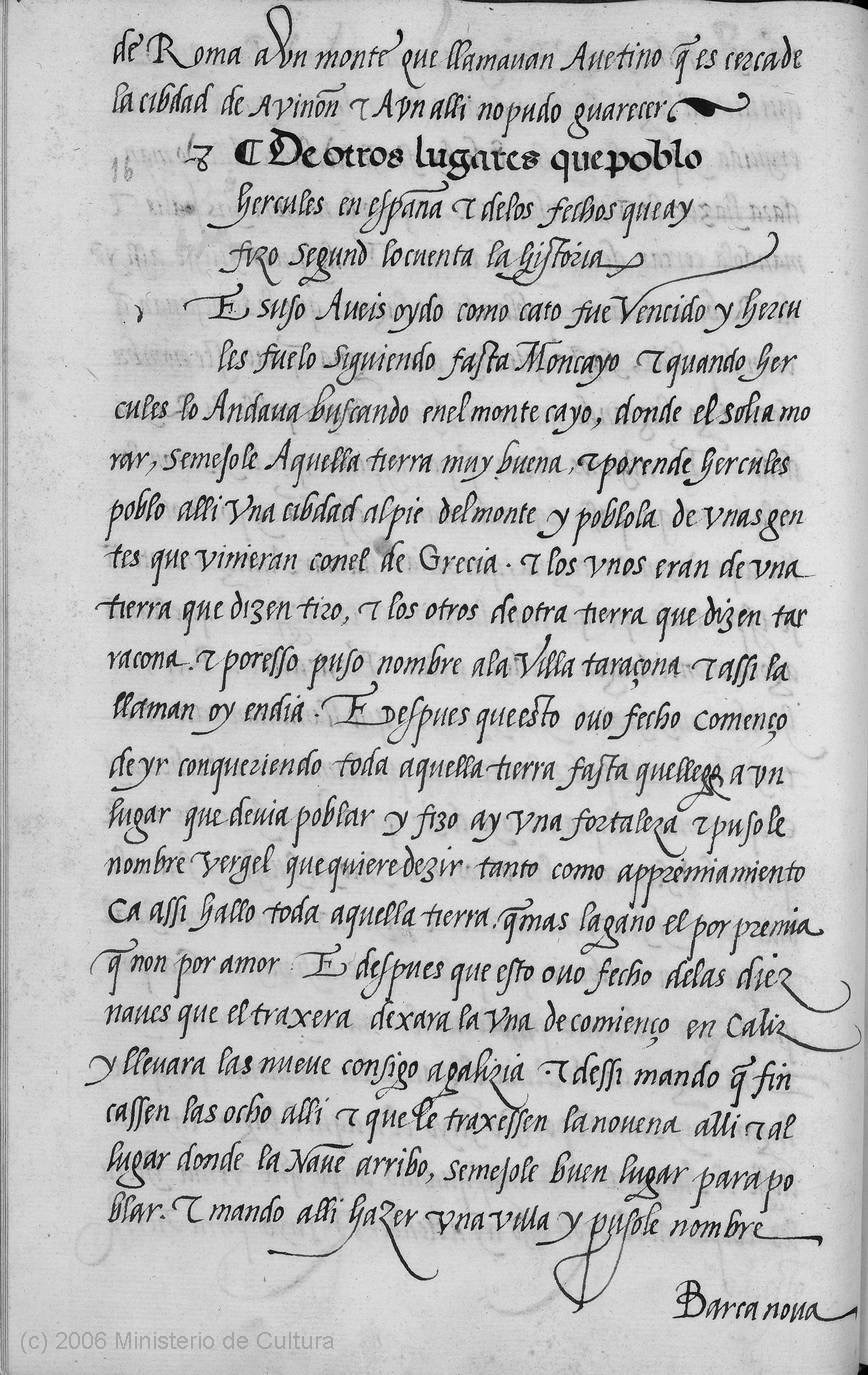 de Roma a Vn monte que llamauan Auetino q̃ es cerca de
la cibdad de Avinon̄ τ Avn alli no pudo guarecer
¶ De otros lugares que poblo
hercules en espan̄a τ delos fechos que ay
fizo segund lo cuenta la historia
E suso Aueis oydo como cato fue Vencido y hercu
les fuelo siguiendo fasta Moncayo τ quando her
cules lo Andaua buscando enel monte cayo, donde el solia mo
rar, semejole Aquella tierra muy buena, τ porende hercules
poblo alli Vna cibdad al pie del monte y poblola de vnas gen
tes que vinieran conel de Grecia. τ los vnos eran de vna
tierra que dizen tiro, τ los otros de otra tierra que dizen tar
racona. τ poresso puso nombre ala Villa taraçona τ assi la
llaman oy endia. E Despues que esto ouo fecho començo
de yr conqueriendo toda aquella tierra fasta que llego a vn
lugar que deuia poblar y fizo ay vna fortaleza τ puso le
nombre vergel que quiere dezir tanto como appremiamiento
Ca assi hallo toda aquella tierra. q̃ mas la gano el por premia
q̃ non por amor E despues que esto ouo fecho delas diez
naues que el traxera dexara la vna de comienço en Caliz
y lleuara las nueue consigo a galizia. τ dessi mando q̃ fin
cassen las ocho alli τ que le traxessen la nouena alli τ al
lugar donde la Naue arribo, semejole buen lugar para po
blar. τ mando alli hazer vna villa y pusole nombre
Barca noua
(c) 2006 Ministerio de Cultura